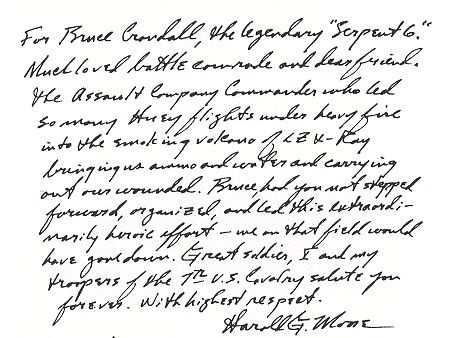 For Bruce Crandall, the legendary "Serpent 6."
Much loved battle comrade and dear friend.
The Assault Company Commander who led
so many Huey flights under heavy fire
into the smoking volcano of LZ X-Ray
bringing us ammo and water and carrying
out our wounded. Bruce, had you not stepped
forward, organized, and led this extraordi-
narily heroic effort - we on that field would
have gone down. Great soldier, I and my
troopers of the 7th U.S. Cavalry salute you
forever. With highest respect.
Harold G. Moore